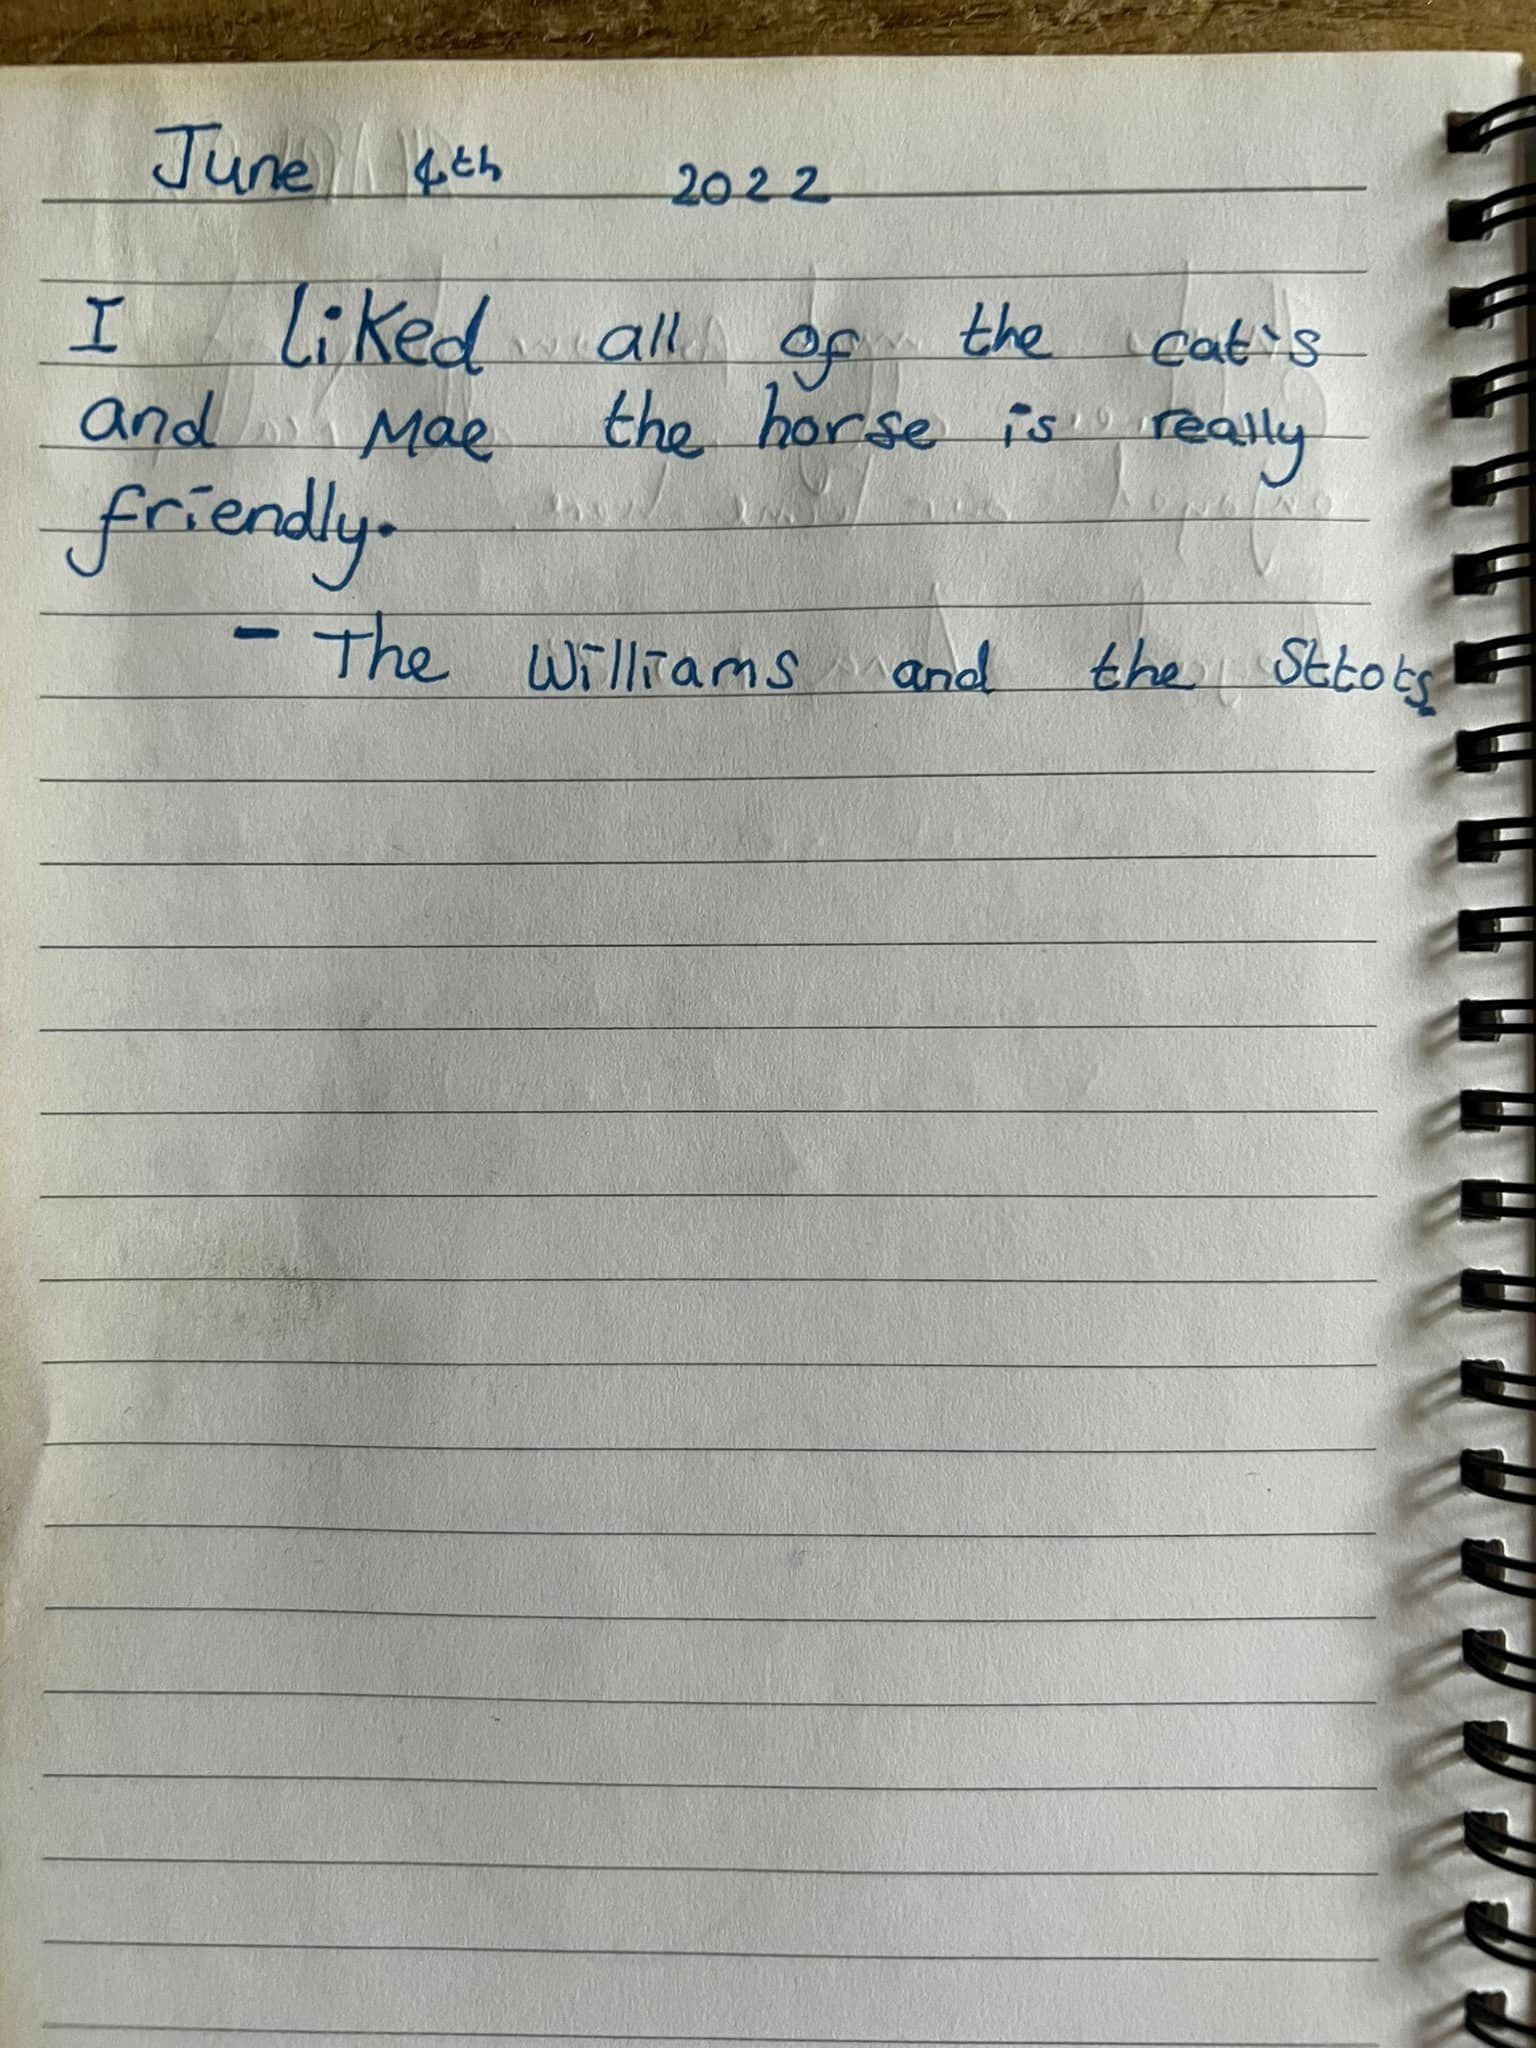 June 4th 2022
I liked all of the cat's
and Mae the horse is really
friendly.
- The Williams and the Sttots.